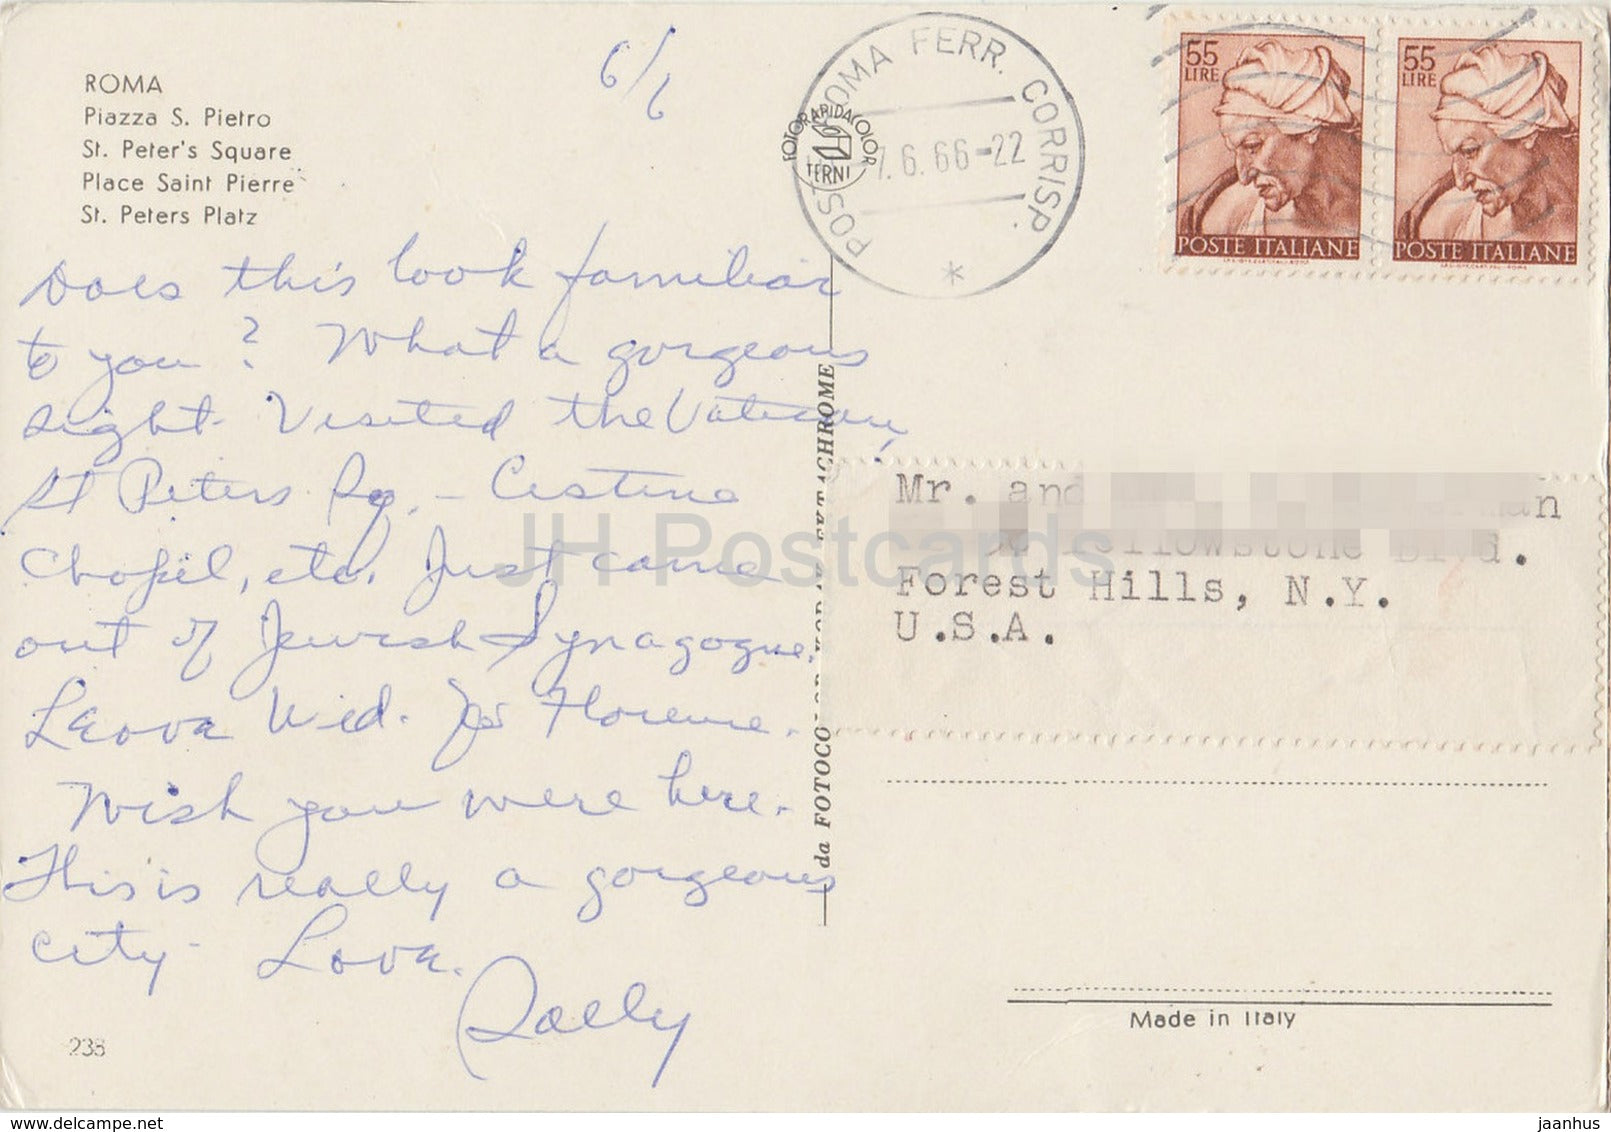 ROMA
Piazza S. Pietro
St. Peter's Square
Place Saint Pierre
St. Peters Platz
6/6
Does this look familiar
to you? What a gorgeous
sight. Visited the Vatican,
St Peters Sq. - Cestine
Chapel, etc. Just came
out of Jewish Synagogue.
Leave Wed. for Florence.
Wish you were here.
This is really a gorgeous
city - Love.
Sally
238
POSTE ROMA FERR. CORRISP.
7.6.66-22
FOTORAPIDACOLOR
TERNI
55
LIRE
POSTE ITALIANE
55
LIRE
POSTE ITALIANE
da FOTOCOLOR KODAK EKTACHROME
Mr. and
Yellowstone Blvd.
Forest Hills, N.Y.
U.S.A.
Made in Italy
JH Postcards
www.delcampe.net
jaanhus